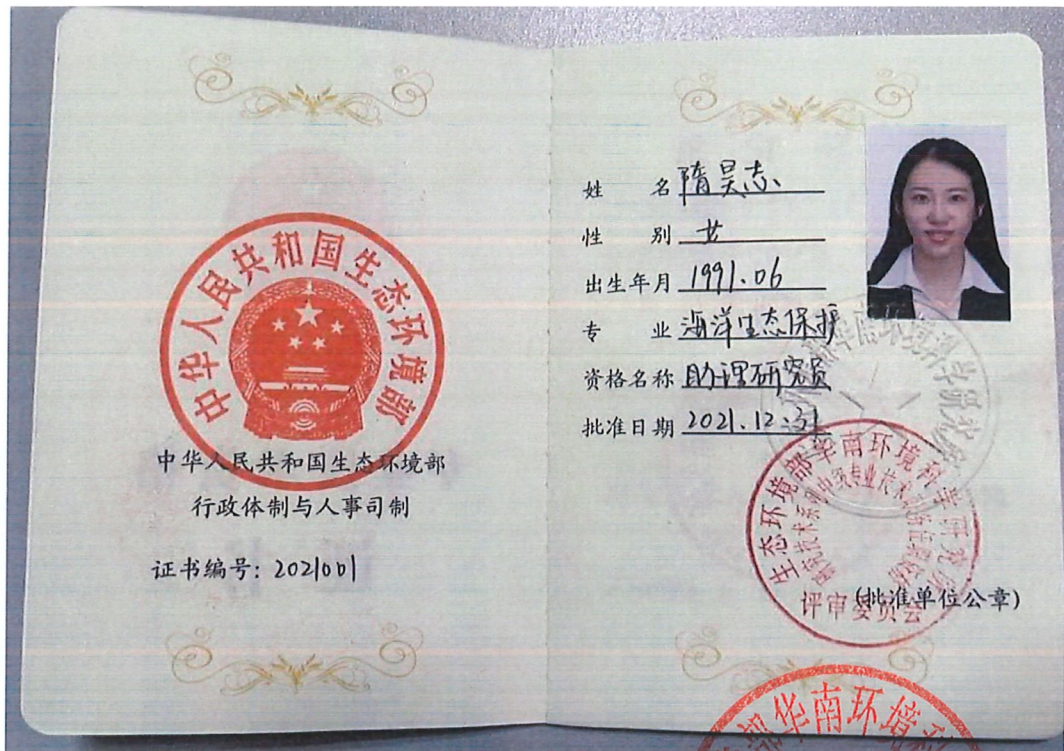 中华人民共和国生态环境部
中华人民共和国生态环境部
行政体制与人事司制
证书编号: 2021001
姓 名 隋昊志
性 别 女
出生年月 1991.06
专 业 海洋生态保护
资格名称 助理研究员
批准日期 2021.12.31
生态环境部华南环境科学研究所
评审委员会
(批准单位公章)
部华南环境科